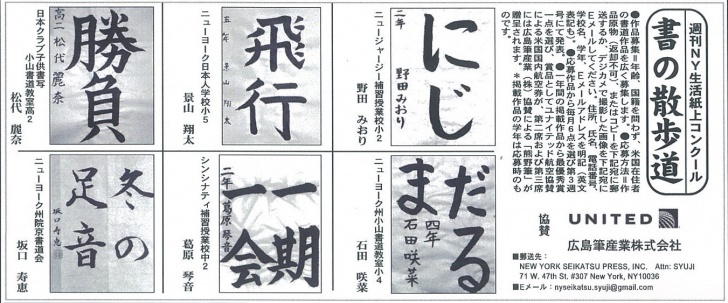 週刊NY生活紙上コンクール
書の散歩道
●作品募集＝年齢、国籍を問わず、米国在住者
の書道作品を広く募集します。●応募方法＝作
品原物（返却不可）、またはコピーを下記宛に郵
送するか、デジカメで撮影した画像を下記宛に
Eメールしてください。住所、氏名、電話番号、
学校名、学年、Eメールアドレスを明記（英文
表記も）。●応募作品から毎月6点を選び第3週
号にて発表。●一年間の掲載作品から最優秀賞
一点を選び、賞品としてユナイテッド航空協賛
による米国国内航空券が、第二席および第三席
には広島筆産業（株）協賛による「熊野筆」が
贈呈されます。＊掲載作品の学年は応募時のも
のです。
協賛
UNITED
広島筆産業株式会社
■郵送先：
NEW YORK SEIKATSU PRESS, INC. Attn: SYUJI
71 W. 47th St. #307 New York, NY10036
■Eメール：nyseikatsu.syuji@gmail.com
にじ
二年 野田みおり
ニュージャージー補習授業校小2
野田 みおり
飛行
五年 景山翔太
ニューヨーク日本人学校小5
景山 翔太
勝負
高二 松代麗奈
日本クラブ子供書写
小山書道教室高2
松代 麗奈
だるま
四年 石田咲菜
ニューヨーク州小山書道教室小4
石田 咲菜
一期
一会
二年 葛原琴音
シンシナティ補習授業校中2
葛原 琴音
冬の
足音
坂口寿恵
ニューヨーク州院京書道会
坂口 寿恵